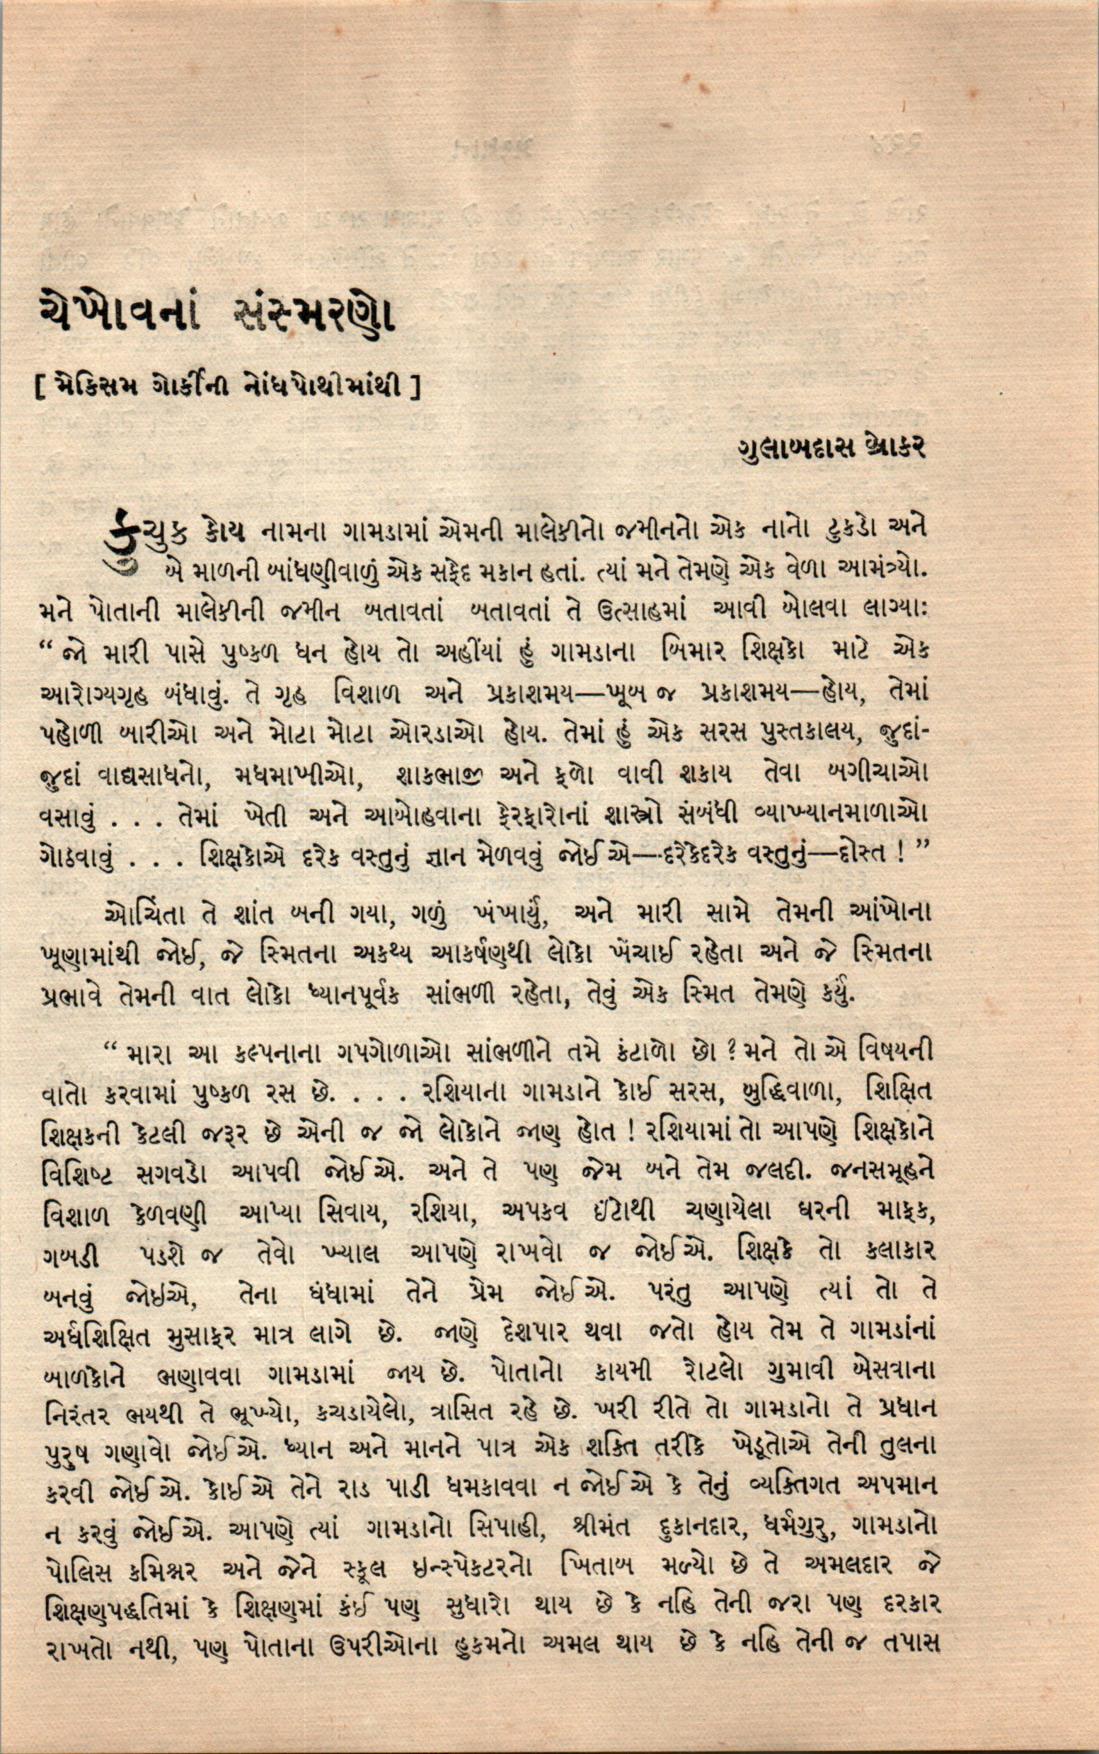 ચેખોવનાં સંસ્મરણો
[ મેક્સિમ ગોર્કીની નોંધપોથીમાંથી ]
ગુલાબદાસ બ્રોકર
કુચુક કોય નામના ગામડામાં એમની માલેકીનો જમીનનો એક નાનો ટુકડો અને
બે માળની બાંધણીવાળું એક સફેદ મકાન હતાં. ત્યાં મને તેમણે એક વેળા આમંત્ર્યો.
મને પોતાની માલેકીની જમીન બતાવતાં બતાવતાં તે ઉત્સાહમાં આવી બોલવા લાગ્યા:
“ જો મારી પાસે પુષ્કળ ધન હોય તો અહીંયાં હું ગામડાના બિમાર શિક્ષકો માટે એક
આરોગ્યગૃહ બંધાવું. તે ગૃહ વિશાળ અને પ્રકાશમય—ખૂબ જ પ્રકાશમય—હોય, તેમાં
પહોળી બારીઓ અને મોટા મોટા ઓરડાઓ હોય. તેમાં હું એક સરસ પુસ્તકાલય, જુદાં-
જુદાં વાદ્યસાધનો, મધમાખીઓ, શાકભાજી અને ફળો વાવી શકાય તેવા બગીચાઓ
વસાવું . . . તેમાં ખેતી અને આબોહવાના ફેરફારોનાં શાસ્ત્રો સંબંધી વ્યાખ્યાનમાળાઓ
ગોઠવાવું . . . શિક્ષકોએ દરેક વસ્તુનું જ્ઞાન મેળવવું જોઈએ—દરેકેદરેક વસ્તુનું—દોસ્ત ! ”
ઓચિંતા તે શાંત બની ગયા, ગળું ખંખાર્યું, અને મારી સામે તેમની આંખોના
ખૂણામાંથી જોઈ, જે સ્મિતના અકથ્ય આકર્ષણથી લોકો ખેંચાઈ રહેતા અને જે સ્મિતના
પ્રભાવે તેમની વાત લોકો ધ્યાનપૂર્વક સાંભળી રહેતા, તેવું એક સ્મિત તેમણે કર્યું.
“ મારા આ કલ્પનાના ગપગોળાઓ સાંભળીને તમે કંટાળો છો ? મને તો એ વિષયની
વાતો કરવામાં પુષ્કળ રસ છે. . . . રશિયાના ગામડાને કોઈ સરસ, બુદ્ધિવાળા, શિક્ષિત
શિક્ષકની કેટલી જરૂર છે એની જ જો લોકોને જાણ હોત ! રશિયામાં તો આપણે શિક્ષકોને
વિશિષ્ટ સગવડો આપવી જોઈએ. અને તે પણ જેમ બને તેમ જલદી. જનસમૂહને
વિશાળ કેળવણી આપ્યા સિવાય, રશિયા, અપકવ ઈંટોથી ચણાયેલા ઘરની માફક,
ગબડી પડશે જ તેવો ખ્યાલ આપણે રાખવો જ જોઈએ. શિક્ષકે તો કલાકાર
બનવું જોઇએ, તેના ધંધામાં તેને પ્રેમ જોઈએ. પરંતુ આપણે ત્યાં તો તે
અર્ધશિક્ષિત મુસાફર માત્ર લાગે છે. જાણે દેશપાર થવા જતો હોય તેમ તે ગામડાંનાં
બાળકોને ભણાવવા ગામડામાં જાય છે. પોતાનો કાયમી રોટલો ગુમાવી બેસવાના
નિરંતર ભયથી તે ભૂખ્યો, કચડાયેલો, ત્રાસિત રહે છે. ખરી રીતે તો ગામડાનો તે પ્રધાન
પુરુષ ગણાવો જોઈએ. ધ્યાન અને માનને પાત્ર એક શક્તિ તરીકે ખેડૂતોએ તેની તુલના
કરવી જોઈએ. કોઈએ તેને રાડ પાડી ધમકાવવા ન જોઈએ કે તેનું વ્યક્તિગત અપમાન
ન કરવું જોઈએ. આપણે ત્યાં ગામડાનો સિપાહી, શ્રીમંત દુકાનદાર, ધર્મગુરુ, ગામડાનો
પોલિસ કમિશ્નર અને જેને સ્કૂલ ઇન્સ્પેકટરનો ખિતાબ મળ્યો છે તે અમલદાર જે
શિક્ષણપદ્ધતિમાં કે શિક્ષણમાં કંઈ પણ સુધારો થાય છે કે નહિ તેની જરા પણ દરકાર
રાખતો નથી, પણ પોતાના ઉપરીઓના હુકમનો અમલ થાય છે કે નહિ તેની જ તપાસ